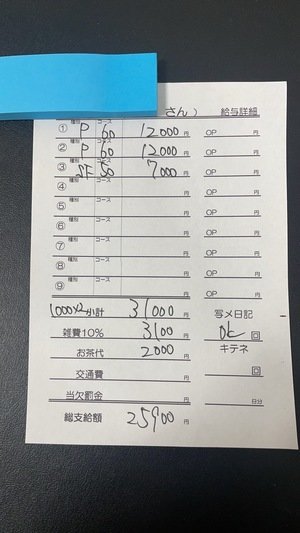 さん) 給与詳細
① 種別 P コース 60 12000円 OP 円
② 種別 P コース 60 12000円 OP 円
③ 種別 コース 50 7000円 OP 円
④ 種別 コース 円 OP 円
⑤ 種別 コース 円 OP 円
⑥ 種別 コース 円 OP 円
⑦ 種別 コース 円 OP 円
⑧ 種別 コース 円 OP 円
⑨ 種別 コース 円 OP 円
1000×2 小計 31000円 写メ日記
雑費10% 3100円 OK 回
お茶代 2000円 キテネ
交通費 円 回
当欠罰金 円 日分
総支給額 25900円